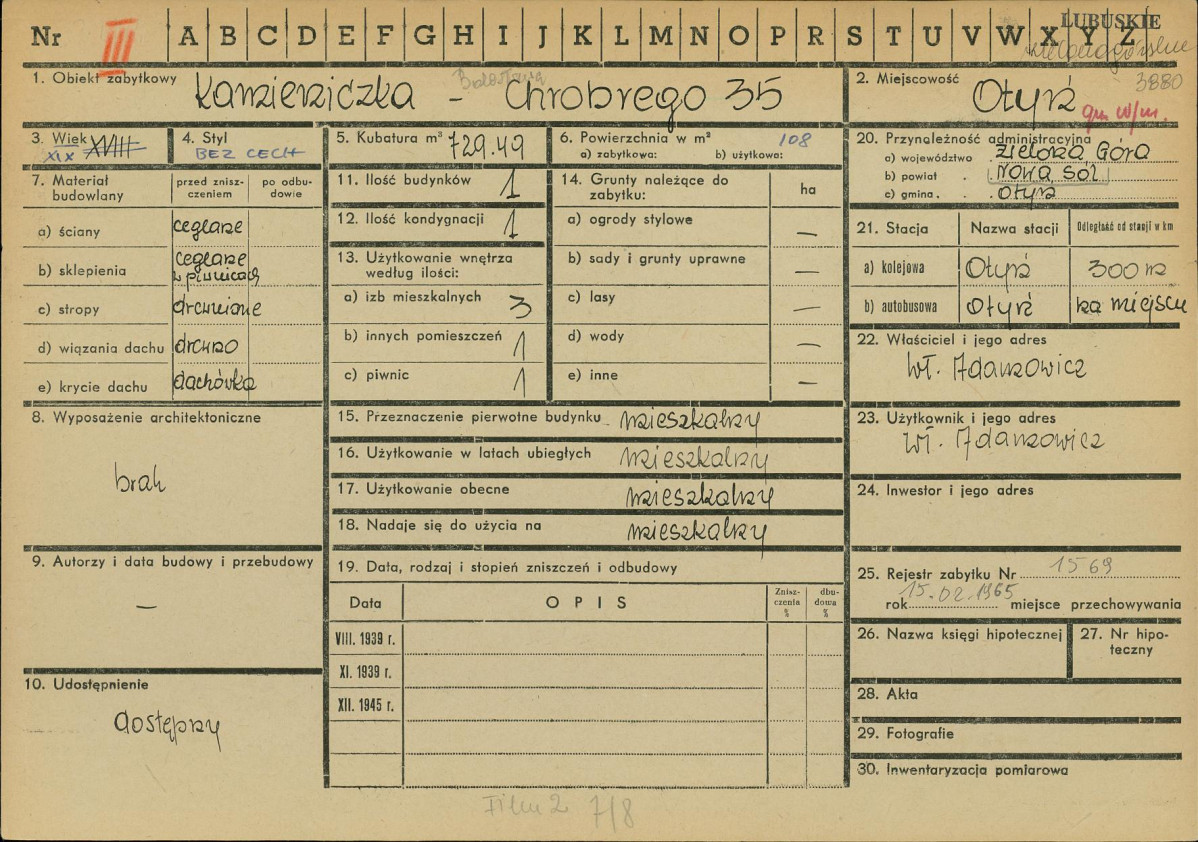 Nr III A B C D E F G H I J K L M N O P R S T U V W X Y Z
LUBUSKIE
zielonogórskie
3880
1. Obiekt zabytkowy
Kamieniczka - Chrobrego 35
Bolesława
2. Miejscowość
Otyń
gm w/m.
3. Wiek
XIX XVIII
4. Styl
BEZ CECH
5. Kubatura m³ 729.49
6. Powierzchnia w m² 108
a) zabytkowa: b) użytkowa:
7. Materiał budowlany
przed zniszczeniem
po odbudowie
a) ściany ceglane
b) sklepienia ceglane w piwnicach
c) stropy drewniane
d) wiązania dachu drewno
e) krycie dachu dachówka
8. Wyposażenie architektoniczne
brak
9. Autorzy i data budowy i przebudowy
—
10. Udostępnienie
dostępny
11. Ilość budynków 1
12. Ilość kondygnacji 1
13. Użytkowanie wnętrza według ilości:
a) izb mieszkalnych 3
b) innych pomieszczeń 1
c) piwnic 1
14. Grunty należące do zabytku: ha
a) ogrody stylowe —
b) sady i grunty uprawne —
c) lasy —
d) wody —
e) inne —
15. Przeznaczenie pierwotne budynku mieszkalny
16. Użytkowanie w latach ubiegłych mieszkalny
17. Użytkowanie obecne mieszkalny
18. Nadaje się do użycia na mieszkalny
19. Data, rodzaj i stopień zniszczeń i odbudowy
Data OPIS Zniszczenia % dbudowa %
VIII. 1939 r.
XI. 1939 r.
XII. 1945 r.
20. Przynależność administracyjna
a) województwo Zielona Góra
b) powiat Nowa Sól
c) gmina Otyń
21. Stacja Nazwa stacji Odległość od stacji w km
a) kolejowa Otyń 300 m
b) autobusowa Otyń na miejscu
22. Właściciel i jego adres
Wł. Adamowicz
23. Użytkownik i jego adres
Wł. Adamowicz
24. Inwestor i jego adres
25. Rejestr zabytku Nr 1569
rok 15.02.1965 miejsce przechowywania
26. Nazwa księgi hipotecznej
27. Nr hipoteczny
28. Akta
29. Fotografie
30. Inwentaryzacja pomiarowa
Film 2 7/8